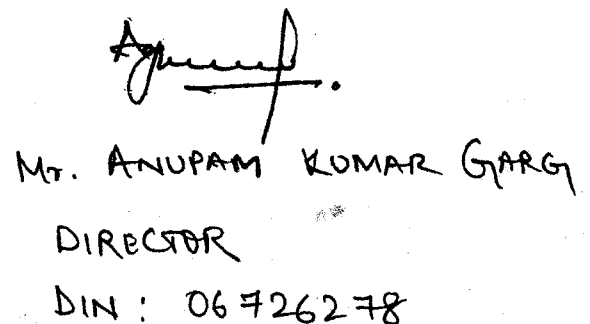 Mr. ANUPAM KUMAR GARG
DIRECTOR
DIN : 06726278